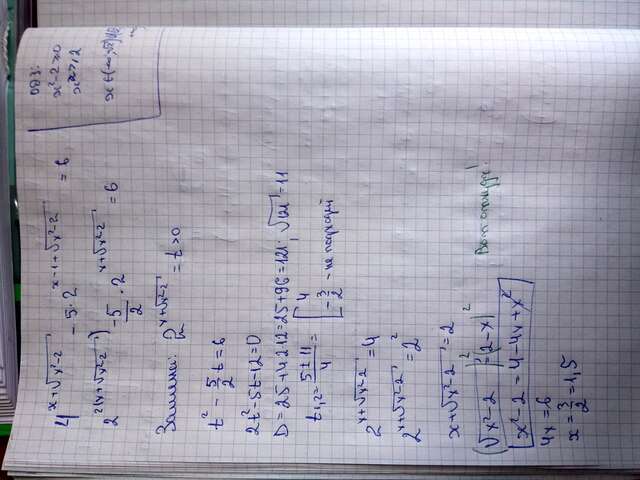 4^{x+\sqrt{x^2-2}} - 5 \cdot 2^{x-1+\sqrt{x^2-2}} = 6
2^{2(x+\sqrt{x^2-2})} - \frac{5}{2} \cdot 2^{x+\sqrt{x^2-2}} = 6
2^{x+\sqrt{x^2-2}} = t > 0
t^2 - \frac{5}{2} t = 6
2t^2 - 5t - 12 = 0
D = 25 + 4·2·12 = 25 + 96 = 121; \sqrt{121} = 11
t_{1,2} = \frac{5±11}{4} = [ 4
-\frac{3}{2} - не
2^{x+\sqrt{x^2-2}} = 4
2^{x+\sqrt{x^2-2}} = 2^2
x + \sqrt{x^2-2} = 2
(\sqrt{x^2-2})^2 = (2-x)^2
x^2 - 2 = 4 - 4x + x^2
4x = 6
x = \frac{3}{2} = 1,5
ОДЗ:
x^2 - 2 ≥ 0
x^2 ≥ 2